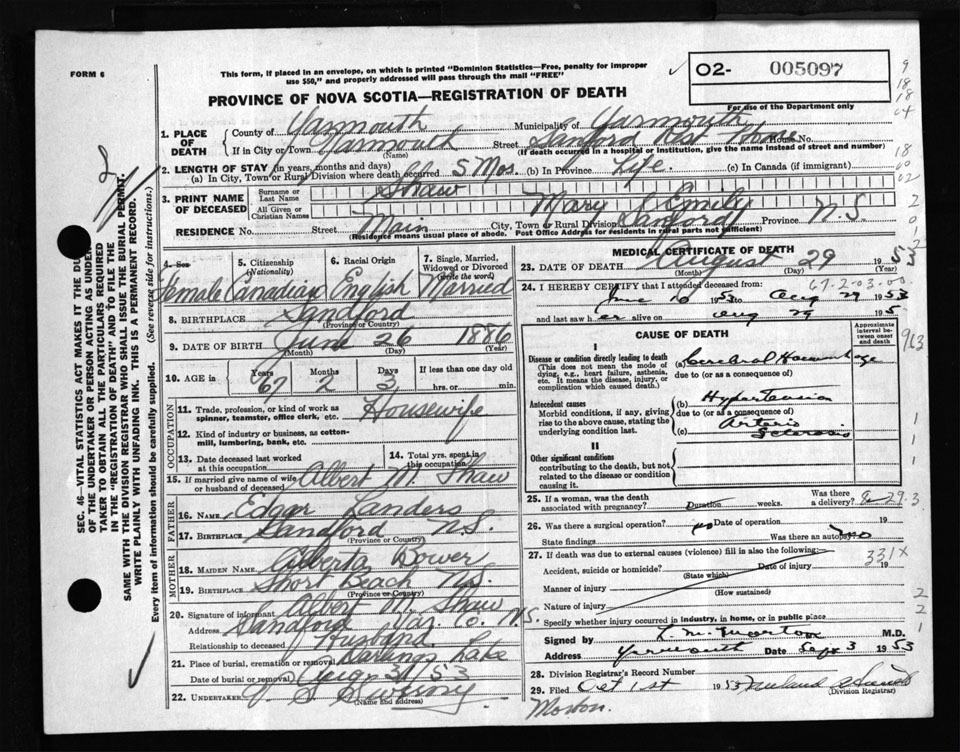 FORM 6
This form, if placed in an envelope, on which is printed "Dominion Statistics—Free, penalty for improper
use $50," and properly addressed will pass through the mail "FREE"
O2- 005097
For use of the Department only
PROVINCE OF NOVA SCOTIA—REGISTRATION OF DEATH
1. PLACE OF DEATH
County of Yarmouth Municipality of Yarmouth
If in City or Town Yarmouth (Name) Street Sanford Rest Home House No.
(If death occurred in a hospital or institution, give the name instead of street and number)
2. LENGTH OF STAY (in years, months and days)
(a) In City, Town or Rural Division where death occurred 5 Mos. (b) In Province Life (c) In Canada (if immigrant)
3. PRINT NAME OF DECEASED
Surname or Last Name Shaw
All Given or Christian Names Mary Emily
RESIDENCE No. Street Main City, Town or Rural Division Sanford Province N.S.
(Residence means usual place of abode. Post Office Address for residents in rural parts not sufficient)
4. Sex Female
5. Citizenship (Nationality) Canadian
6. Racial Origin English
7. Single, Married, Widowed or Divorced (write the word) Married
8. BIRTHPLACE Sandford
(Province or Country)
9. DATE OF BIRTH June 26 1886
(Month) (Day) (Year)
10. AGE in Years 67 Months 2 Days 3 If less than one day old hrs. or min.
OCCUPATION
11. Trade, profession, or kind of work as spinner, teamster, office clerk, etc. Housewife
12. Kind of industry or business, as cotton-mill, lumbering, bank, etc.
13. Date deceased last worked at this occupation
14. Total yrs. spent in this occupation
15. If married give name of wife or husband of deceased Albert N. Shaw
FATHER
16. Name Edgar Landers
17. Birthplace Sandford N.S.
(Province or Country)
MOTHER
18. MAIDEN NAME Alberta Bower
19. BIRTHPLACE Short Beach N.S.
(Province or Country)
20. Signature of informant Albert N. Shaw
Address Sandford Yar. Co. N.S.
Relationship to deceased Husband
21. Place of burial, cremation or removal Darlings Lake
Date of burial or removal Aug 31/53
22. UNDERTAKER V S Sweeny
(Name and address)
MEDICAL CERTIFICATE OF DEATH
23. DATE OF DEATH August 29 1953
(Month) (Day) (Year)
67-2-03-00
24. I HEREBY CERTIFY that I attended deceased from:
June 10 1953 to Aug 29 1953
and last saw her alive on Aug 29 195
CAUSE OF DEATH
Approximate interval between onset and death
I
Disease or condition directly leading to death (a) Cerebral Haemorrhage
(This does not mean the mode of dying, e.g., heart failure, asthenia, etc. It means the disease, injury, or complication which caused death.)
due to (or as a consequence of)
Antecedent causes (b) Hypertension
Morbid conditions, if any, giving rise to the above cause, stating the underlying condition last.
due to (or as a consequence of)
(c) Arterio Sclerosis
II
Other significant conditions
contributing to the death, but not related to the disease or condition causing it.
25. If a woman, was the death associated with pregnancy? Duration weeks. Was there a delivery?
8-29-3
26. Was there a surgical operation? no Date of operation 19
State findings Was there an autopsy? no
27. If death was due to external causes (violence) fill in also the following:
331X
Accident, suicide or homicide? (State which) Date of injury 19
Manner of injury (How sustained)
Nature of injury
Specify whether injury occurred in industry, in home, or in public place
Signed by L. M. Morton M.D.
Address Yarmouth Date Sept 3 1953
28. Division Registrar's Record Number
29. Filed Oct 1st 1953
(Division Registrar)
Morton.
SEC. 46—VITAL STATISTICS ACT MAKES IT THE DUTY
OF THE UNDERTAKER OR PERSON ACTING AS UNDER-
TAKER TO OBTAIN ALL THE PARTICULARS REQUIRED
IN THE "REGISTRATION OF DEATH" AND TO FILE THE
SAME WITH THE DIVISION REGISTRAR WHO SHALL ISSUE THE BURIAL PERMIT.
WRITE PLAINLY WITH UNFADING INK. THIS IS A PERMANENT RECORD.
Every item of information should be carefully supplied. (See reverse side for instructions.)